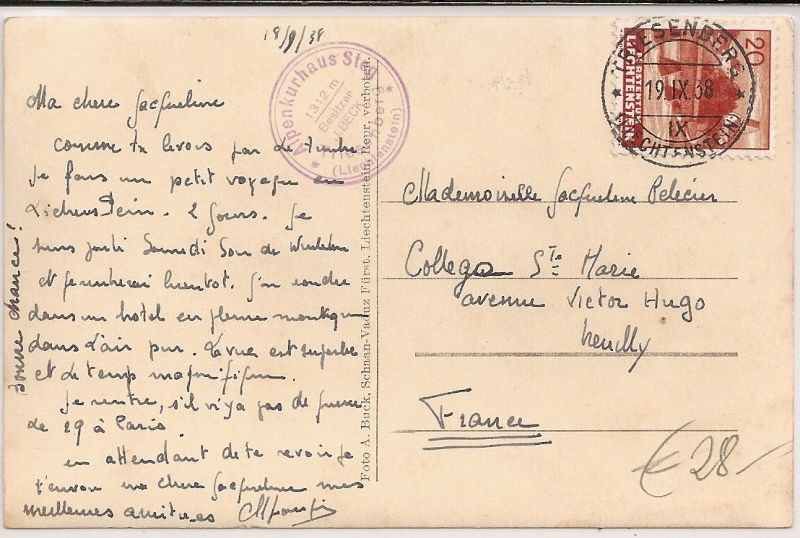 18/9/38
Ma chere Jacqueline
Comme tu le vois par de timbre
Je fais un petit voyage en
Lichens Tein. 2 Jours. Je
suis parti Samedi Soir de
et
dans un hotel en pleine montagne
dans l'air pur. La vue est superbe
et de temps magnifique.
Je rentre, s'il n'y a pas de guerre
de 29 à Paris
en attendant de te revoir je
t'envoie ma chere Jacqueline mes
meilleures amities
bonne chance!
Alpenkurhaus Steg
1312 m
Besitzer
BECK
Triesenberg
(Liechtenstein)
Foto A. Buck, Schaan-Vaduz Fürst. Liechtenstein, Repr. verboten.
TRIESENBERG
19.IX.38
IX
(LIECHTENSTEIN)
20
FÜRSTENTUM
LIECHTENSTEIN
Mademoiselle Jacqueline Pelicier
College Ste Marie
avenue Victor Hugo
Neuilly
France
€ 28-